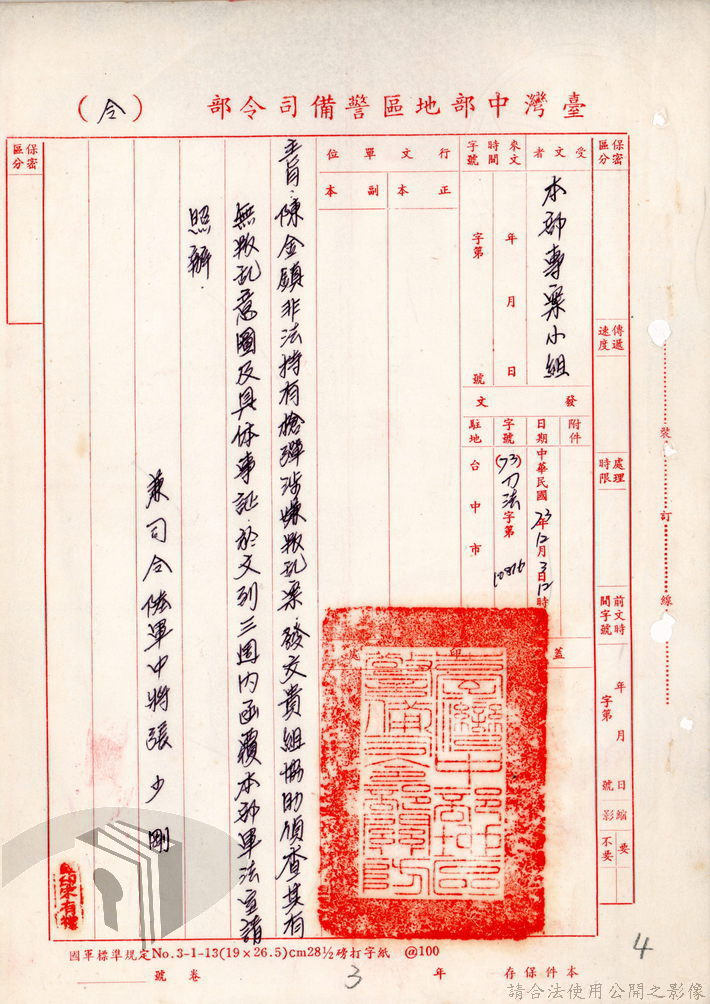 臺灣中部地區警備司令部（令）
保密區分
傳遞速度
處理時限
前文時間字號
年 月 日
字第 號
縮影
要
不要
受文者
本部專案小組
來文時間字號
年 月 日
字第 號
發文
附件
日期
中華民國73年12月3日12時
字號
(73)刀法字第10816
駐地
台中市
行文單位
正本
副本
蓋印
主旨：陳金鎮非法持有槍彈涉嫌叛乱案，發文貴組協助偵查其有
無叛乱意圖及具体事証，於文列三週內函覆本部軍法室請
照辦．
兼司令陸軍中將張少剛
保密區分
裝訂線
國軍標準規定No.3-1-13(19×26.5)cm28½磅打字紙 @100
本件保存3年
卷 號
4
請合法使用公開之影像